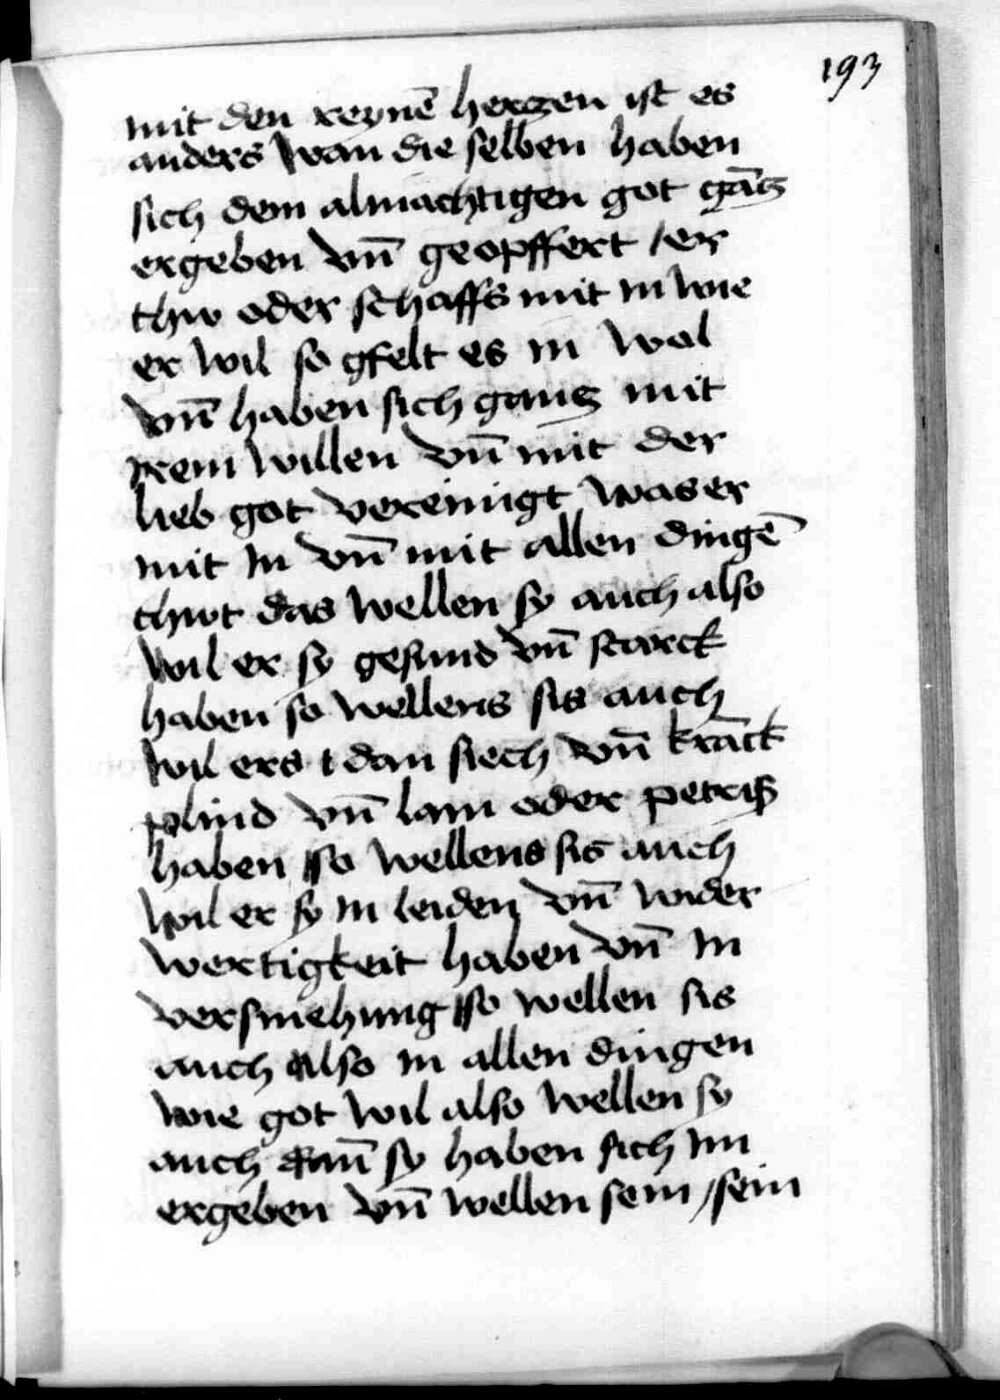 193
mit den reynē herczen ist es
anders wan die selben haben
sich dem almachtigen got gācz
ergeben vn̄ geopffert / er
thw oder schaffs mit in wie
er wil so gfelt es in wol
vn̄ haben sich gancz mit
irem willen vn̄ mit der
lieb got vereinigt was er
mit in vn̄ mit allen dingē
thwt das wellen sy auch also
wil er sy gesund vn̄ starck
haben so wellens sis auch
wil ers dan siech vn̄ krāck
plind vn̄ lam oder petriß
haben so wellens sis auch
wil er sy in leiden vn̄ wider
wertigkeit haben vn̄ in
versmehung so wellen sis
auch also in allen dingen
wie got wil also wellen sy
auch dan̄ sy haben sich im
ergeben vn̄ wellen sein / sein